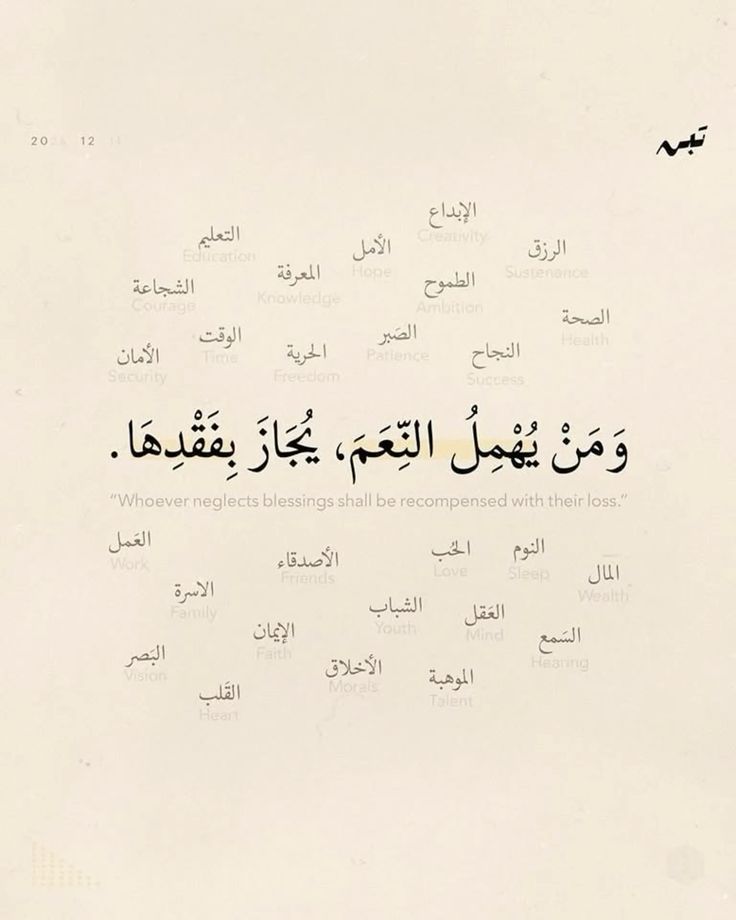 20 12
الإبداع
Creativity
التعليم
Education
الأمل
Hope
الرزق
Sustenance
المعرفة
Knowledge
الطموح
Ambition
الشجاعة
Courage
الصحة
Health
الوقت
Time
الصَبر
Patience
الأمان
Security
الحرية
Freedom
النجاح
Success
وَمَنْ يُهْمِلُ النِّعَمَ، يُجَازَ بِفَقْدِهَا.
“Whoever neglects blessings shall be recompensed with their loss.”
العَمل
Work
الأصدقاء
Friends
الحُب
Love
النوم
Sleep
المال
Wealth
الاسرة
Family
الشباب
Youth
العَقل
Mind
الإيمان
Faith
السَمع
Hearing
البَصر
Vision
الأخلاق
Morals
الموهبة
Talent
القَلب
Heart